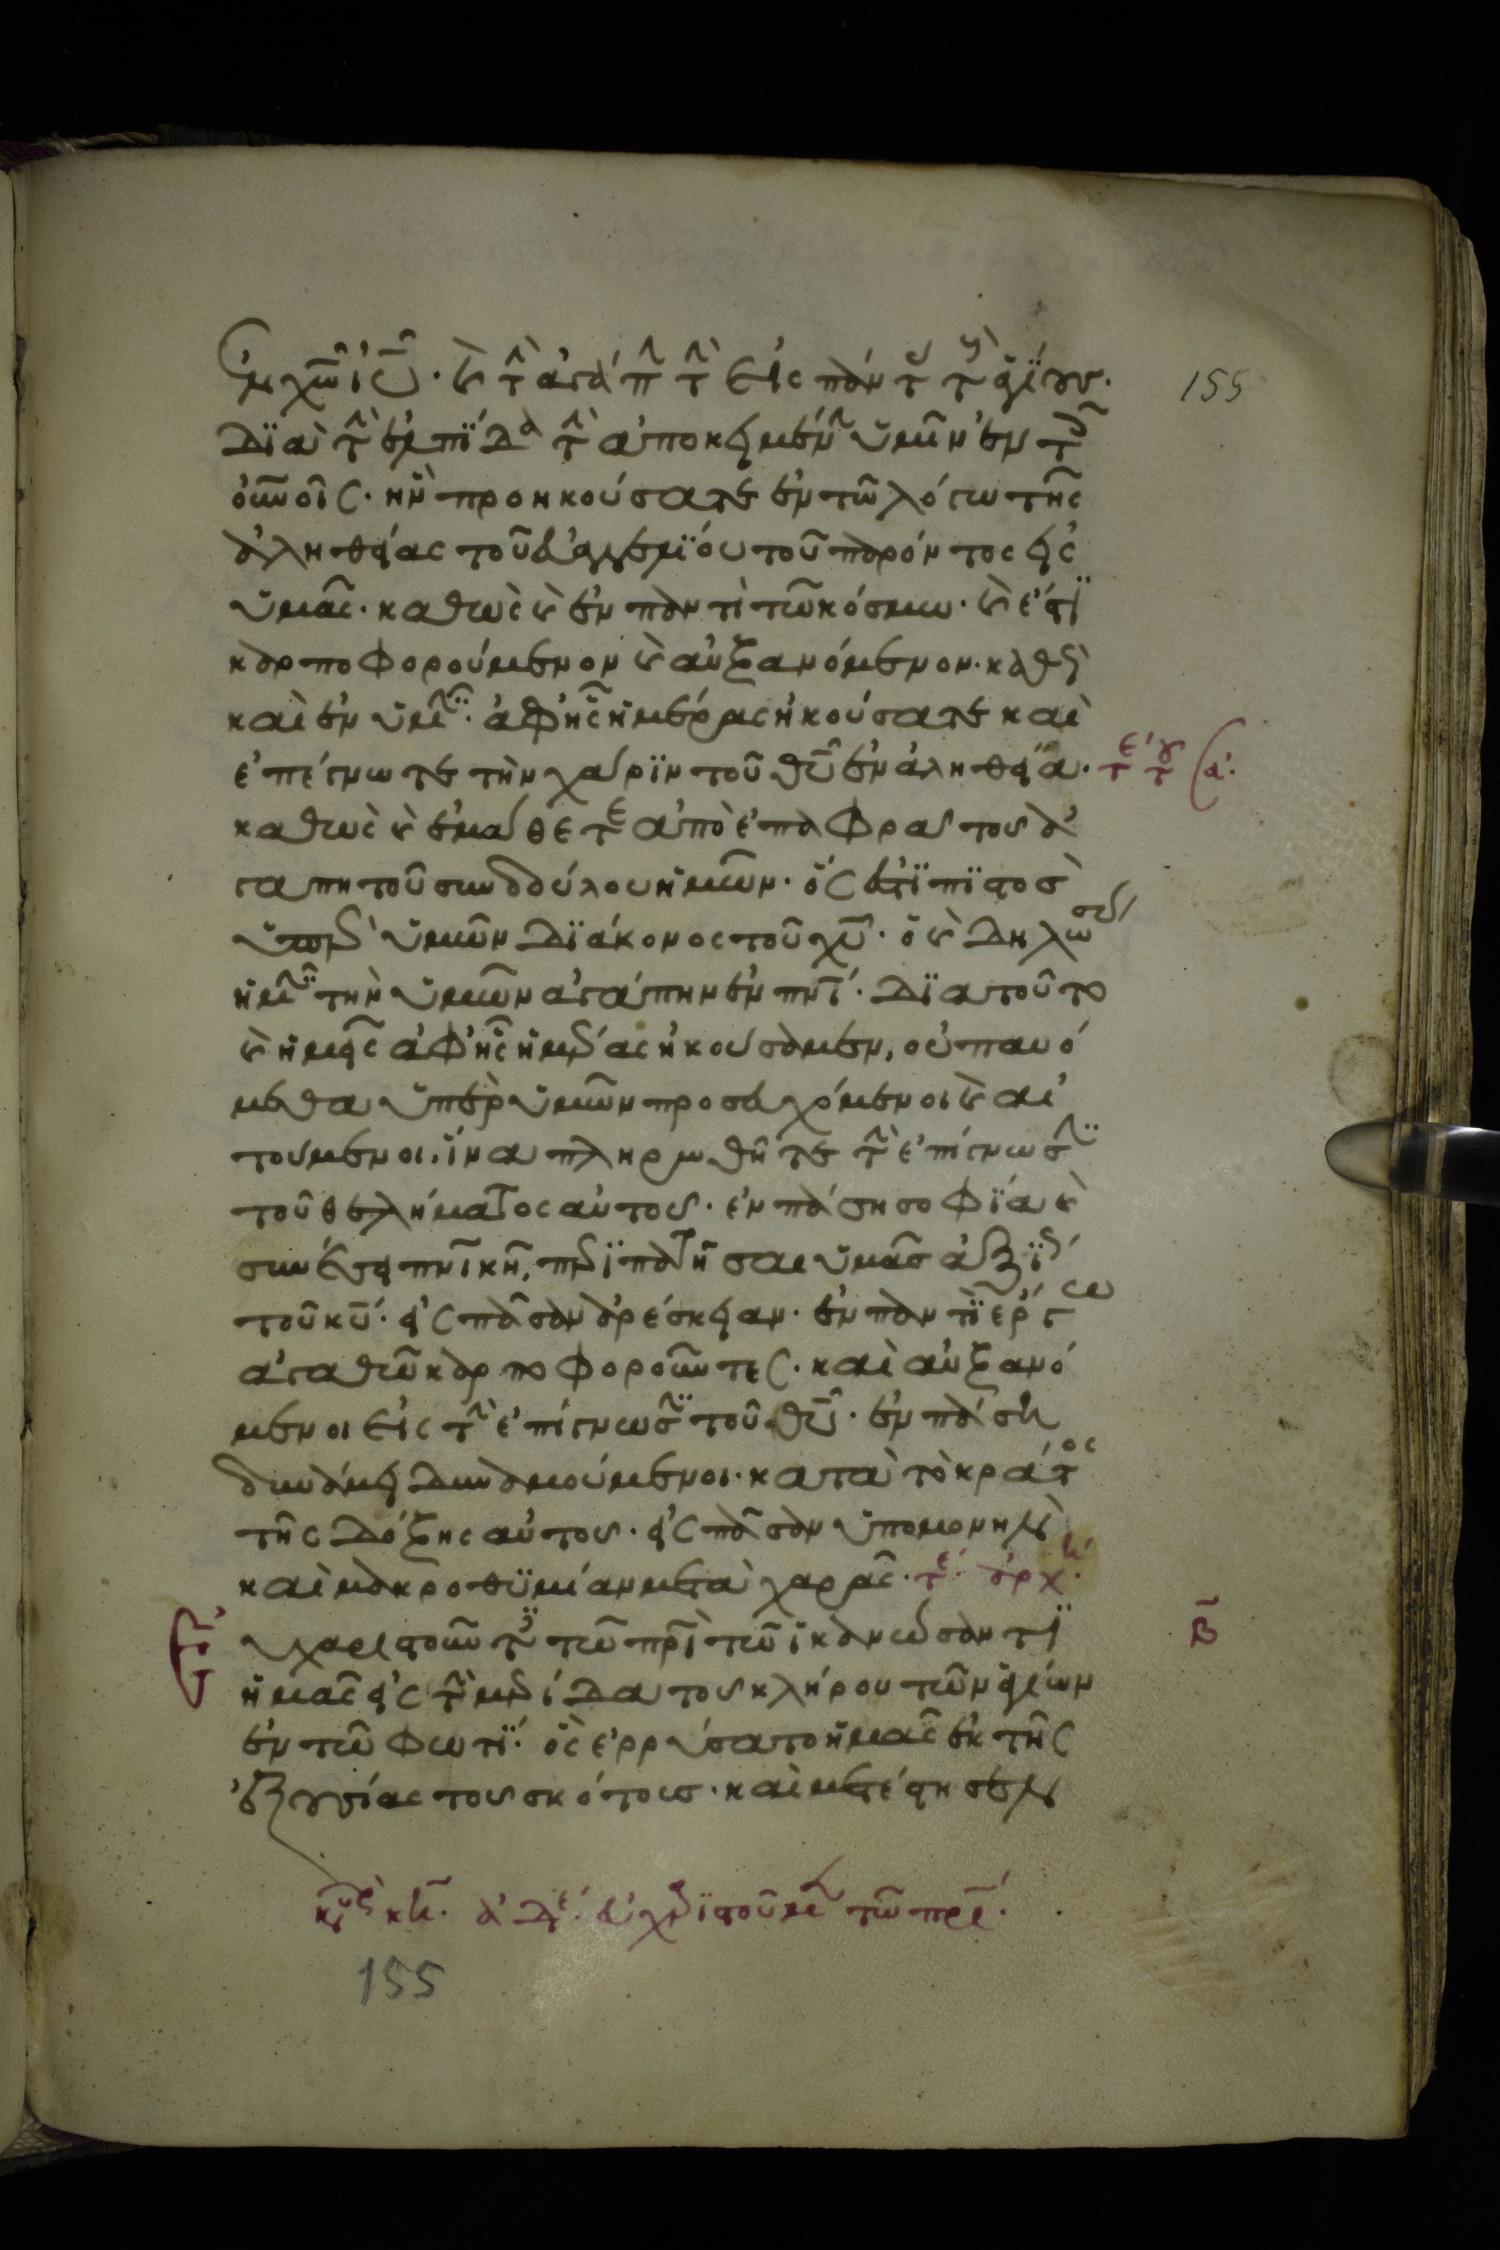 ἐν χῶ ἰῦ. καὶ τὴν ἀγάπην τὴν εἰς πάντας τοὺς ἁγίους. 155
διὰ τὴν ἐλπίδα τὴν ἀποκειμένην ὑμῖν ἐν τοῖς
οὐνοῖς. ἣν προηκούσατε ἐν τῶ λόγω τῆς
ἀληθείας τοῦ εὐαγγελίου τοῦ παρόντος εἰς
ὑμᾶς. καθὼς καὶ ἐν παντὶ τῶ κόσμω. καὶ ἐστὶ
καρποφορούμενον καὶ αὐξανόμενον. καθὼς
καὶ ἐν ὑμῖν. ἀφ' ἧς ἡμέρας ἠκούσατε καὶ
ἐπέγνωτε τὴν χάριν τοῦ θῦ ἐν ἀληθεία.
καθὼς καὶ ἐμάθετε ἀπὸ ἐπαφρᾶ τοῦ ἀ
γαπητοῦ συνδούλου ἡμῶν. ὅς ἐστι πιστὸς
ὑπὲρ ὑμῶν διάκονος τοῦ χῦ. ὁ καὶ δηλώσας
ἡμῖν τὴν ὑμῶν ἀγάπην ἐν πνι. διὰ τοῦτο
καὶ ἡμεῖς ἀφ' ἧς ἡμέρας ἠκούσαμεν, οὐ παυό
μεθα ὑπὲρ ὑμῶν προσευχόμενοι καὶ αἰ
τούμενοι. ἵνα πληρωθῆτε τὴν ἐπίγνωσιν
τοῦ θελήματος αὐτοῦ. ἐν πάση σοφία καὶ
συνέσει πνικῆ, περιπατῆσαι ὑμᾶς ἀξίως
τοῦ κῦ. εἰς πᾶσαν ἀρέσκειαν. ἐν παντὶ ἔργω
ἀγαθῶ καρποφοροῦντες. καὶ αὐξανό
μενοι εἰς τὴν ἐπίγνωσιν τοῦ θῦ. ἐν πάση
δυνάμει δυναμούμενοι. κατὰ τὸ κράτος
τῆς δόξης αὐτοῦ. εἰς πᾶσαν ὑπομονὴν
καὶ μακροθυμίαν μετὰ χαρᾶς.
Εὐχαριστοῦντες τῶ πρι τῶ ἱκανώσαντι Β
ἡμᾶς εἰς τὴν μερίδα τοῦ κλήρου τῶν ἁγίων
ἐν τῶ φωτί. ὃς ἐρρύσατο ἡμᾶς ἐκ τῆς
ἐξουσίας τοῦ σκότους. καὶ μετέστησεν
155